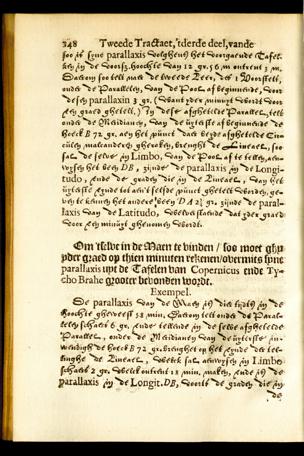 248 Tweede Tractaet, 'tderde deel, vande
soo is syne parallaxis volghens het voorgaende Tafel-
ken in de voorsz. hoochte van 12 gr. 56 m omtrent 3 m.
Daerom soo telt met de tweede Zeer, des 1 Voorstelt,
onder de Parallelen, van de Pool af beginnende, voor
dese parallaxin 3 gr. (want yder minuyt wordt voor
een graed ghetelt.) In dese afghetelde Parallel, telt
onder de Meridianen, van de uyterste af beginnende de
hoeck B 72 gr. aen het punct daer beyde afghetelde Cir-
culen malcanderen ghenaken, brenght de Lineael, soo
sal de selve in Limbo, van de Pool af te tellen, aen-
wysen het been DB, zijnde de parallaxis in de Longi-
tudo, ende de graden die in de Lineael, van het
uyterste eynde tot aen't selfde punct ghetelt worden, ge-
ven te kennen het andere been DA 2½ gr. zijnde de paral-
laxis van de Latitudo, welverstaende dat yder graed
voor een minuyt ghenomen wordt.
Om 'tselve in de Maen te vinden / soo moet ghy
yder graed op thien minuten rekenen / overmits syne
parallaxis uyt de Tafelen van Copernicus ende Ty-
cho Brahe grooter bevonden worde.
Exempel.
De parallaxis van de Maen in die tydt in de
hoochte gheweest 58 min. Daerom telt onder de Paral-
len schaers 6 gr. ende tellende in de selve afghetelde
Parallel, onder de Meridianen van de uyterste in-
wendigh de hoeck B 72 gr. brenghet op het eynde der tel-
linghe de Lineael, welck sal aenwysen in Limbo
schaers 2 gr. welck omtrent 18 min. maken, ende is de
parallaxis in de Longit. DB, voorts de graden die in
de